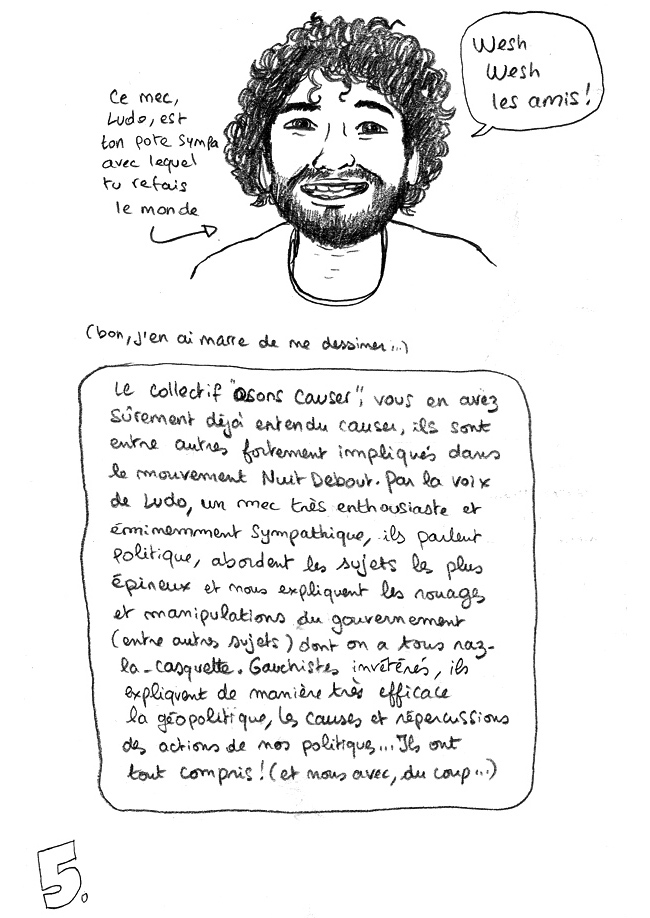 Wesh
Wesh
les amis !
Ce mec,
Ludo, est
ton pote sympa
avec lequel
tu refais
le monde
(bon, j'en ai marre de me dessiner...)
Le collectif "Osons Causer", vous en avez
sûrement déjà entendu causer, ils sont
entre autres fortement impliqués dans
le mouvement Nuit Debout. Par la voix
de Ludo, un mec très enthousiaste et
éminemment sympathique, ils parlent
politique, abordent les sujets les plus
épineux et nous expliquent les rouages
et manipulations du gouvernement
(entre autres sujets) dont on a tous raz-
la-casquette. Gauchistes invétérés, ils
expliquent de manière très efficace
la géopolitique, les causes et répercussions
des actions de nos politiques... Ils ont
tout compris ! (et nous avec, du coup...)
5.